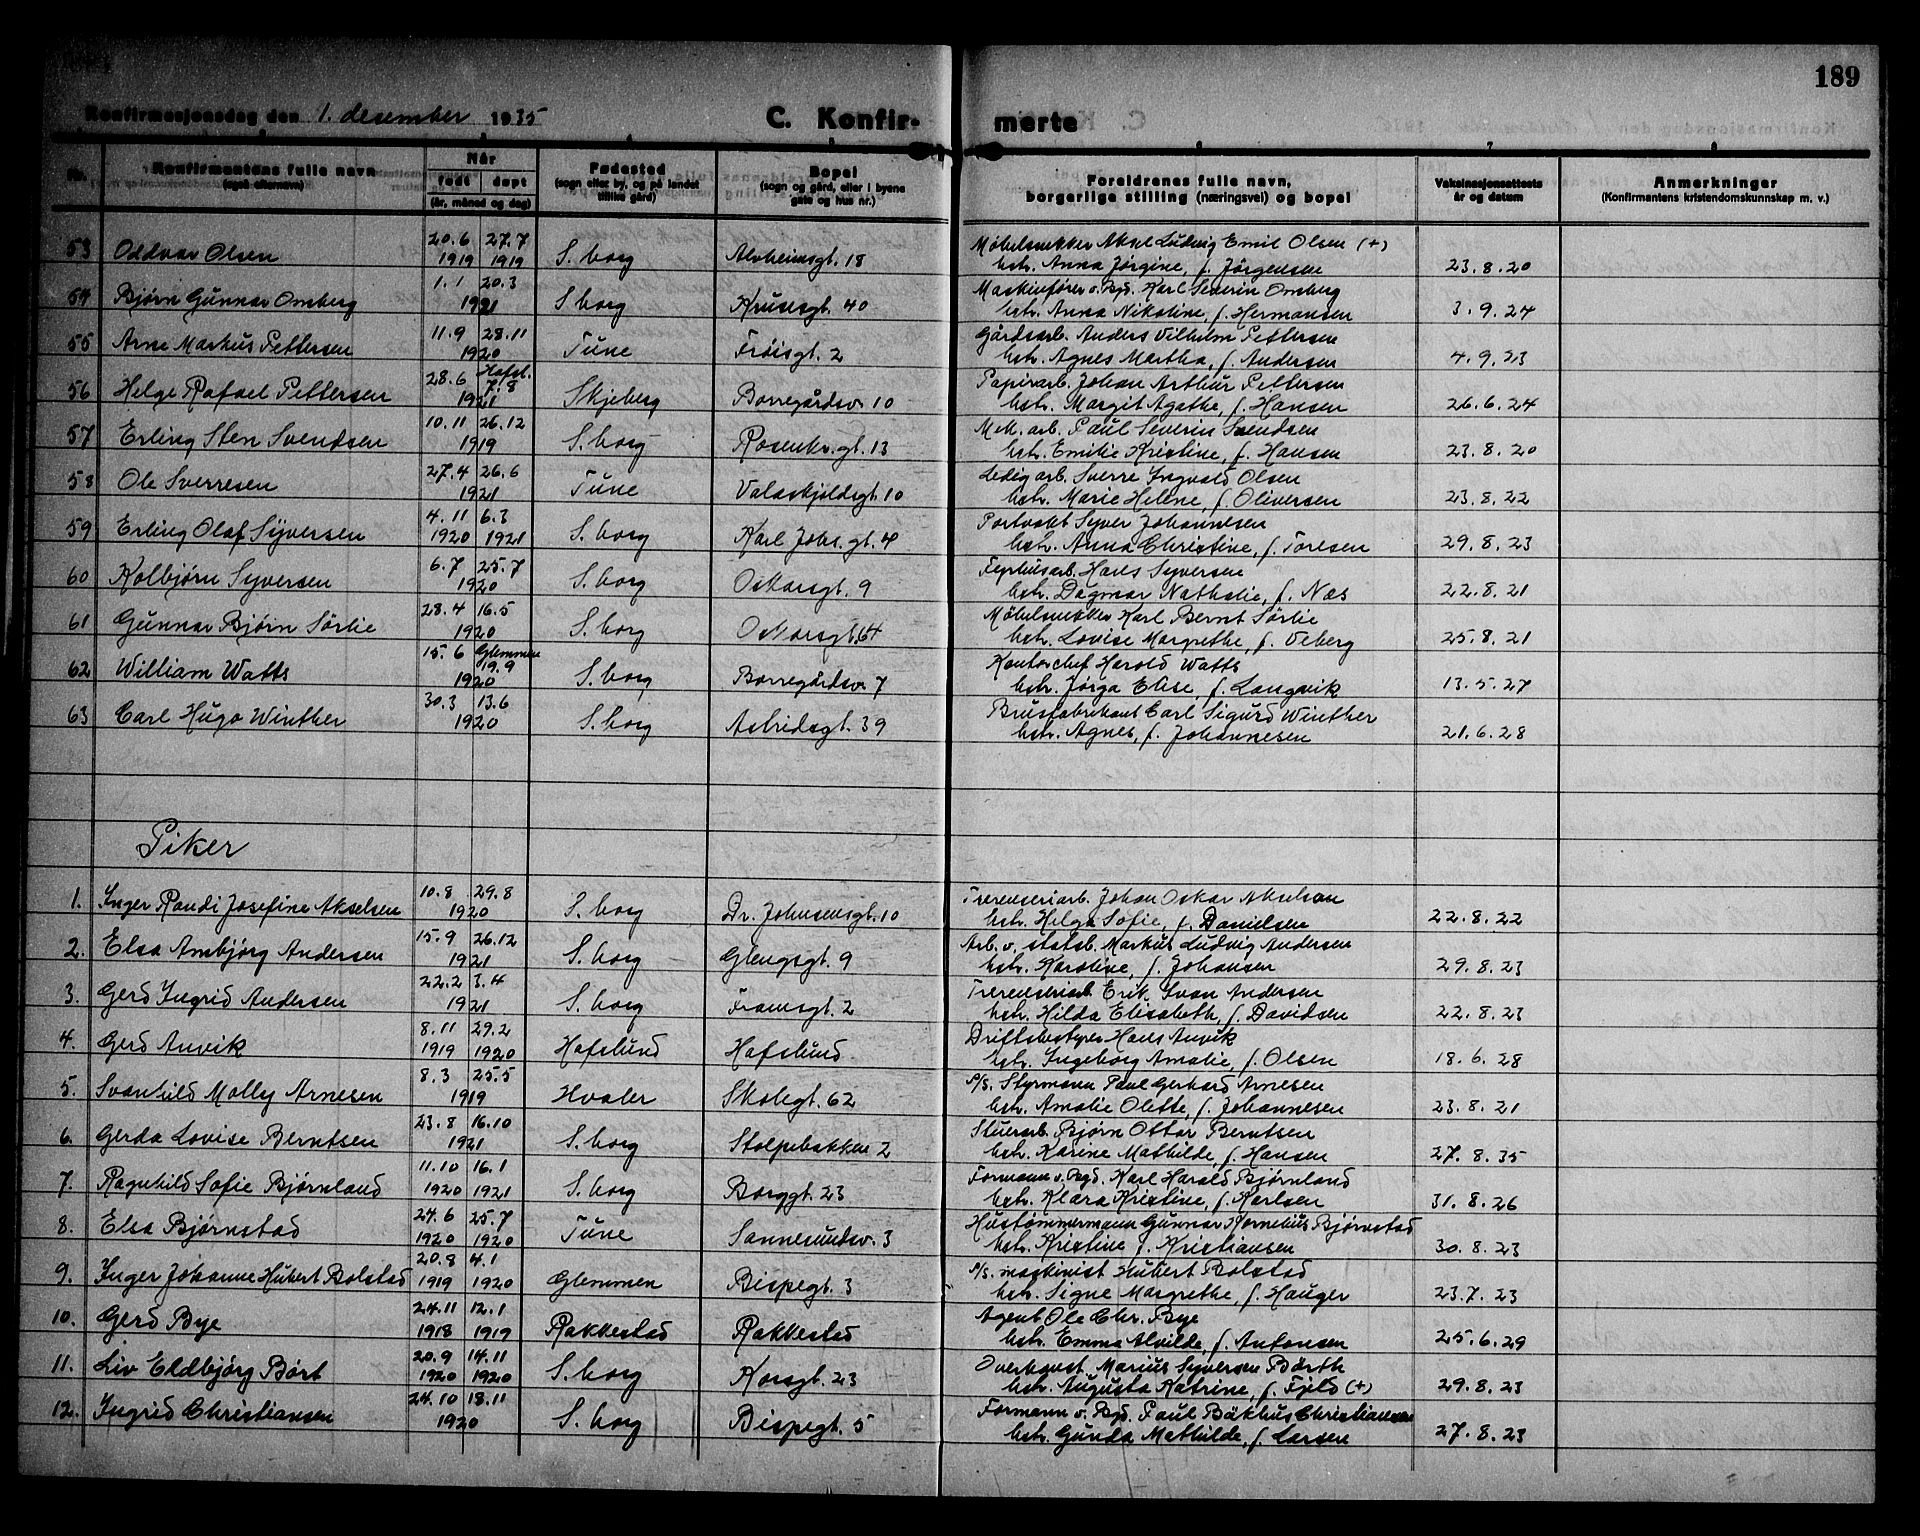 189
Konfirmasjonsdag den 1. desember 1935 C. Konfir- merte
Nr. Konfirmantens fulle navn (også efternavn) Når født døpt (år, måned og dag) Fødested (sogn eller by, og på landet tillike gård) Bopel (sogn og gård, eller i byene gate og hus nr.) Foreldrenes fulle navn, borgerlige stilling (næringsvei) og bopel Vaksinasjonsattests år og datum Anmerkninger (Konfirmantens kristendomskunnskap m. v.)
6 7 8
53 Oddvar Olsen 20.6 1919 27.7 1919 S.borg Alvheimsgt. 18 Møbelsnekker Aksel Ludvig Emil Olsen (+)
hstr. Anna Jørgine, f. Jörgensen 23.8.20
54 Bjørn Gunnar Omberg 1.1 20.3 1921 S.borg Krusesgt. 40 Maskinfører v. Bgd. Karl Severin Omberg
hstr. Anna Nikoline, f. Hermansen 3.9.24
55 Arne Markus Pettersen 11.9 28.11 1920 Tune Frøisgt. 2 Gårdsarb. Anders Vilhelm Pettersen
hstr. Agnes Martha, f. Andersen 4.9.23
56 Helge Rafael Pettersen 28.6 Hafsl. 7.8 1921 Skjeberg Borregårdsv. 10 Papirarb. Johan Arthur Pettersen
hstr. Margit Agathe, f. Hansen 26.6.24
57 Erling Sten Svendsen 10.11 26.12 1919 S.borg Rosenkr.gt. 13 Mek. arb. Paul Severin Svendsen
hstr. Emilie Kristine, f. Hansen 23.8.20
58 Ole Sverresen 27.4 26.6 1921 Tune Valaskjoldsgt. 10 Ledig arb. Sverre Ingvald Olsen
hstr. Marie Helene, f. Oliversen 23.8.22
59 Erling Olaf Syversen 4.11 1920 6.3 1921 S.borg Karl Johs. gt. 4 Portvakt Syver Johannesen
hstr. Anna Christine, f. Toresen 29.8.23
60 Kolbjørn Syversen 6.7 25.7 1920 S.borg Oskarsgt. 9 Fyrhusarb. Hans Syversen
hstr. Dagmar Nathalie, f. Næs 22.8.21
61 Gunnar Bjørn Sørlie 28.4 16.5 1920 S.borg Oskarsgt. 64 Møbelsnekker Karl Bernt Sørlie
hstr. Lovise Margrethe, f. Veberg 25.8.21
62 William Watts 15.6 Glemmen 19.9 1920 S.borg Borregårdsv. 7 Kontorchef Harold Watts
hstr. Jørga Elise, f. Langvik 13.5.27
63 Carl Hugo Winther 30.3 13.6 1920 S.borg Astridsgt. 39 Brusfabrikant Carl Sigurd Winther
hstr. Agnes, f. Johannesen 21.6.28
Piker
1. Inger Randi Josefine Akselsen 10.8 29.8 1920 S.borg Dr. Johnsensgt. 10 Trerenseriarb. Johan Oskar Akselsen
hstr. Helga Sofie, f. Danielsen 22.8.22
2. Elsa Arnbjørg Andersen 15.9 26.12 1921 S.borg Glengsgt. 9 Arb. v. statsb. Markus Ludvig Andersen
hstr. Karoline, f. Johansen 29.8.23
3. Gerd Ingrid Andersen 22.2 3.4 1921 S.borg Framsgt. 2 Trerenseriarb. Erik Ivan Andersen
hstr. Hilda Elisabeth, f. Davidsen 22.8.23
4. Gerd Anvik 8.11 1919 29.2 1920 Hafslund Hafslund Driftsbestyrer Hans Anvik
hstr. Ingeborg Amalie, f. Olsen 18.6.28
5. Svanhild Molly Arnesen 8.3 25.5 1919 Hvaler Skolegt. 62 P/s. Styrmann Paul Gerhard Arnesen
hstr. Amalie Olette, f. Johannesen 23.8.21
6. Gerda Lovise Berntsen 23.8 16.10 1921 S.borg Stolpebakken 2 Stuerarb. Bjørn Ottar Berntsen
hstr. Karine Mathilde, f. Hansen 27.8.35
7. Ragnhild Sofie Bjørnland 11.10 1920 16.1 1921 S.borg Borggt. 23 Formann v. Bgd. Karl Harald Bjørnland
hstr. Klara Kristine, f. Karlsen 31.8.26
8. Elsa Bjørnstad 24.6 1920 25.7 1920 Tune Sannesundsv. 3 Hustømmermann Gunnar Kornelius Bjørnstad
hstr. Kristine f. Kristiansen 30.8.23
9. Inger Johanne Hubert Bolstad 20.8 1919 4.1 1920 Glemmen Bispegt. 3 P/s. maskinist Hubert Bolstad
hstr. Signe Margrethe, f. Hauger 23.7.23
10. Gerd Bye 24.11 1918 12.1 1919 Rakkestad Rakkestad Agent Ole Chr. Bye
hstr. Emma Alvilde, f. Antonsen 25.6.29
11. Liv Eldbjørg Børt 20.9 1920 14.11 1920 S.borg Korsgt. 23 Overkonst. Marius Syversen Börth
hstr. Augusta Katrine, f. Fjeld (+) 29.8.23
12. Ingrid Christiansen 24.10 18.11 1920 S.borg Bispegt. 5 Formann v. Bgd. Paul Bäkhus Christiansen
hstr. Gunda Mathilde, f. Larsen 27.8.23